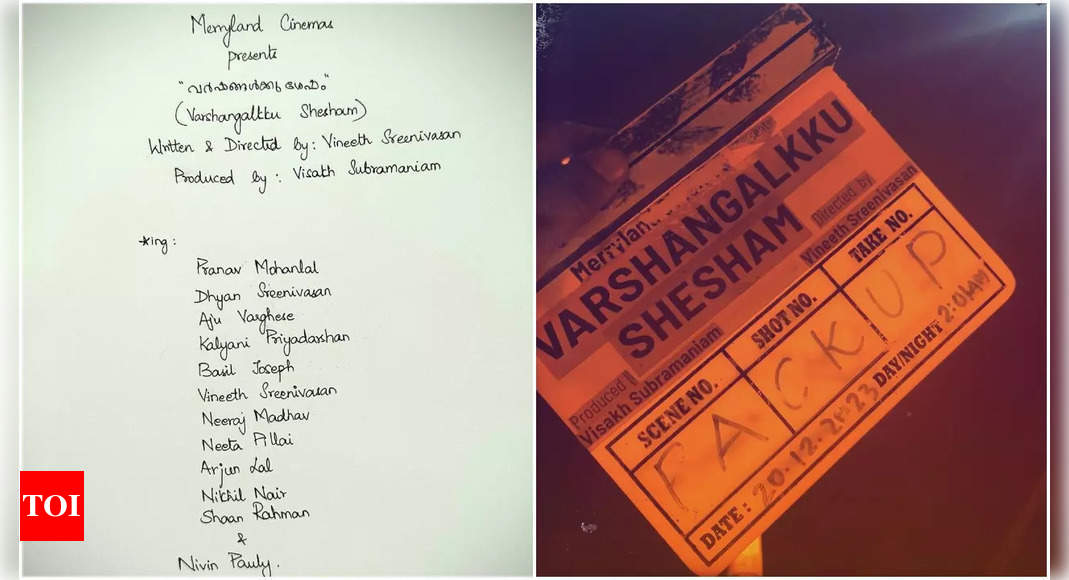 Merryland Cinemas
presents
"വർഷങ്ങൾക്കു ശേഷം"
(Varshangalkku Shesham)
Written & Directed by: Vineeth Sreenivasan
Produced by: Visakh Subramaniam
*ing:
Pranav Mohanlal
Dhyan Sreenivasan
Aju Varghese
Kalyani Priyadarshan
Basil Joseph
Vineeth Sreenivasan
Neeraj Madhav
Neeta Pillai
Arjun Lal
Nikhil Nair
Shaan Rahman
&
Nivin Pauly.
TOI
Merrylan
VARSHANGALKKU
SHESHAM
Directed by
Vineeth Sreenivasan
Produced
Visakh Subramaniam
SCENE NO. SHOT NO. TAKE NO.
PACK UP
DATE: 20-12-2023 DAY/NIGHT 2:01AM